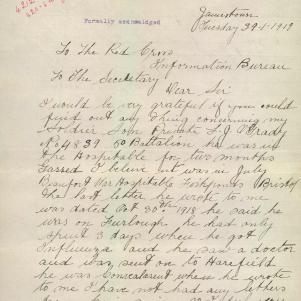 Jamestown
Formally acknowledged
Tuesday 29-1-1919
To The Red Cross
Information Bureau
To The Secretary
Dear Sir
I would be very grateful if you could
find out any thing concerning my
Soldier Son Private
No 4839 50 Battalion he was in
the Hospitable for two months
I believe it was in July
Beaufort War Hospitable Fishponds Bristol
the last letter he wrote to me
was dated Oct 30th 1918 he said he
was on Furlough he had only
spent 3 days when he got
Influenza and he saw a doctor
and was sent on to Harefield
he was Convalescent when he wrote
to me I have not had any letters